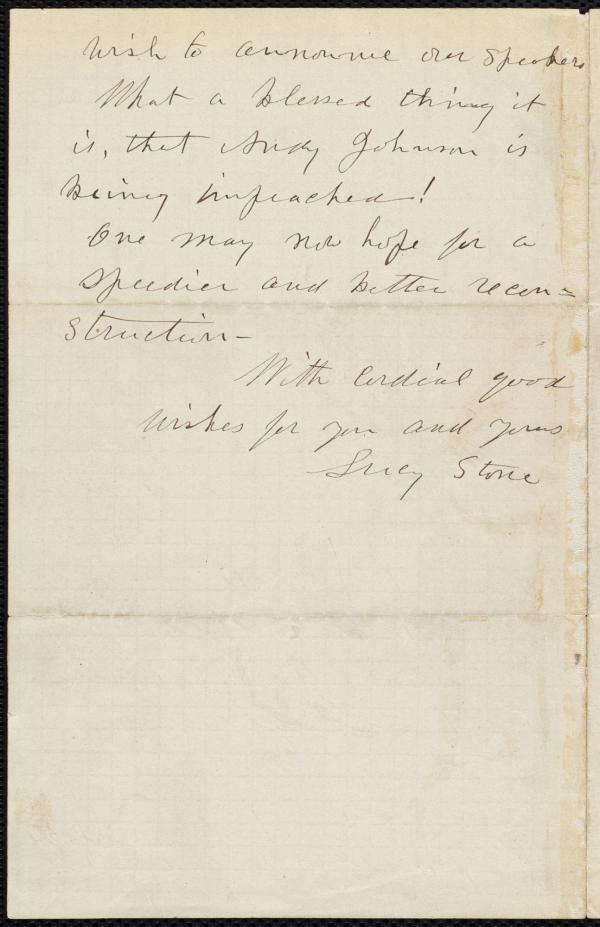 wish to announce our speakers
What a blessed thing it
is, that Andy Johnson is
being impeached!
One may now hope for a
speedier and better recon=
struction—
With cordial good
wishes for you and yours
Lucy Stone